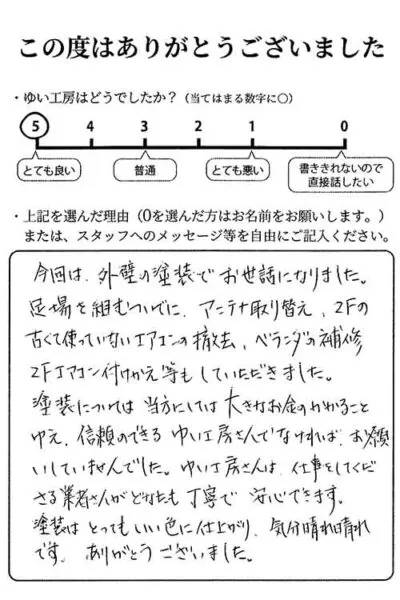 この度はありがとうございました
・ゆい工房はどうでしたか？（当てはまる数字に○）
5 4 3 2 1 0
とても良い 普通 とても悪い 書ききれないので
直接話したい
・上記を選んだ理由（0を選んだ方はお名前をお願いします。）
または、スタッフへのメッセージ等を自由にご記入ください。
今回は、外壁の塗装でお世話になりました。
足場を組むついでに、アンテナ取り替え、2Fの
古くて使っていないエアコンの撤去、ベランダの補修
2Fエアコン付けかえ等もしていただきました。
塗装については当方にしては大きなお金のかかること
ゆえ、信頼のできるゆい工房さんでなければ、お願
いしていませんでした。ゆい工房さんは、仕事をしてくだ
さる業者さんがどなたも丁寧で安心できます。
塗装はとってもいい色に仕上がり、気分晴れ晴れ
です。ありがとうございました。